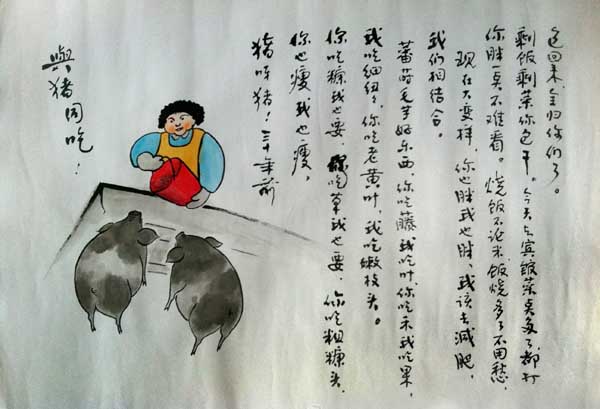 與猪同吃!
猪吖猪!三十年前
你也瘦我也瘦,
你吃糠我也要,你吃草我也要,你吃粗糠头,
我吃细,你吃老黄叶,我吃嫩枝头。
蕃莳毛芋好东西,你吃藤我吃叶,你吃禾我吃果,
我们相结合。
现在大变样,你也胖我也胖,我该去减肥,
你胖一点不难看。烧饭不论米,饭烧多了不用愁,
剩饭剩菜你包干。今天上宾馆菜点多了都打
包回来,全归你们了。